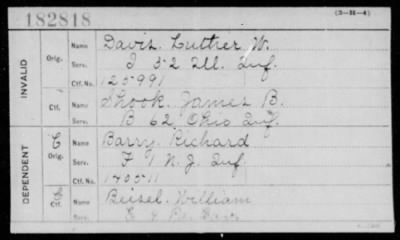 182818
(3—M—4)
INVALID
Orig.
Name Davis. Luther W.
Serv. I 52 Ill. Inf.
Ctf. No. 125991
Ctf.
Name Shook. James B.
Serv. B 62 Ohio Inf.
DEPENDENT
C
Orig.
Name Barry, Richard
Serv. F 1 N. J. Inf
Ctf. No.
Ctf.
Name Beisel. William
Serv.